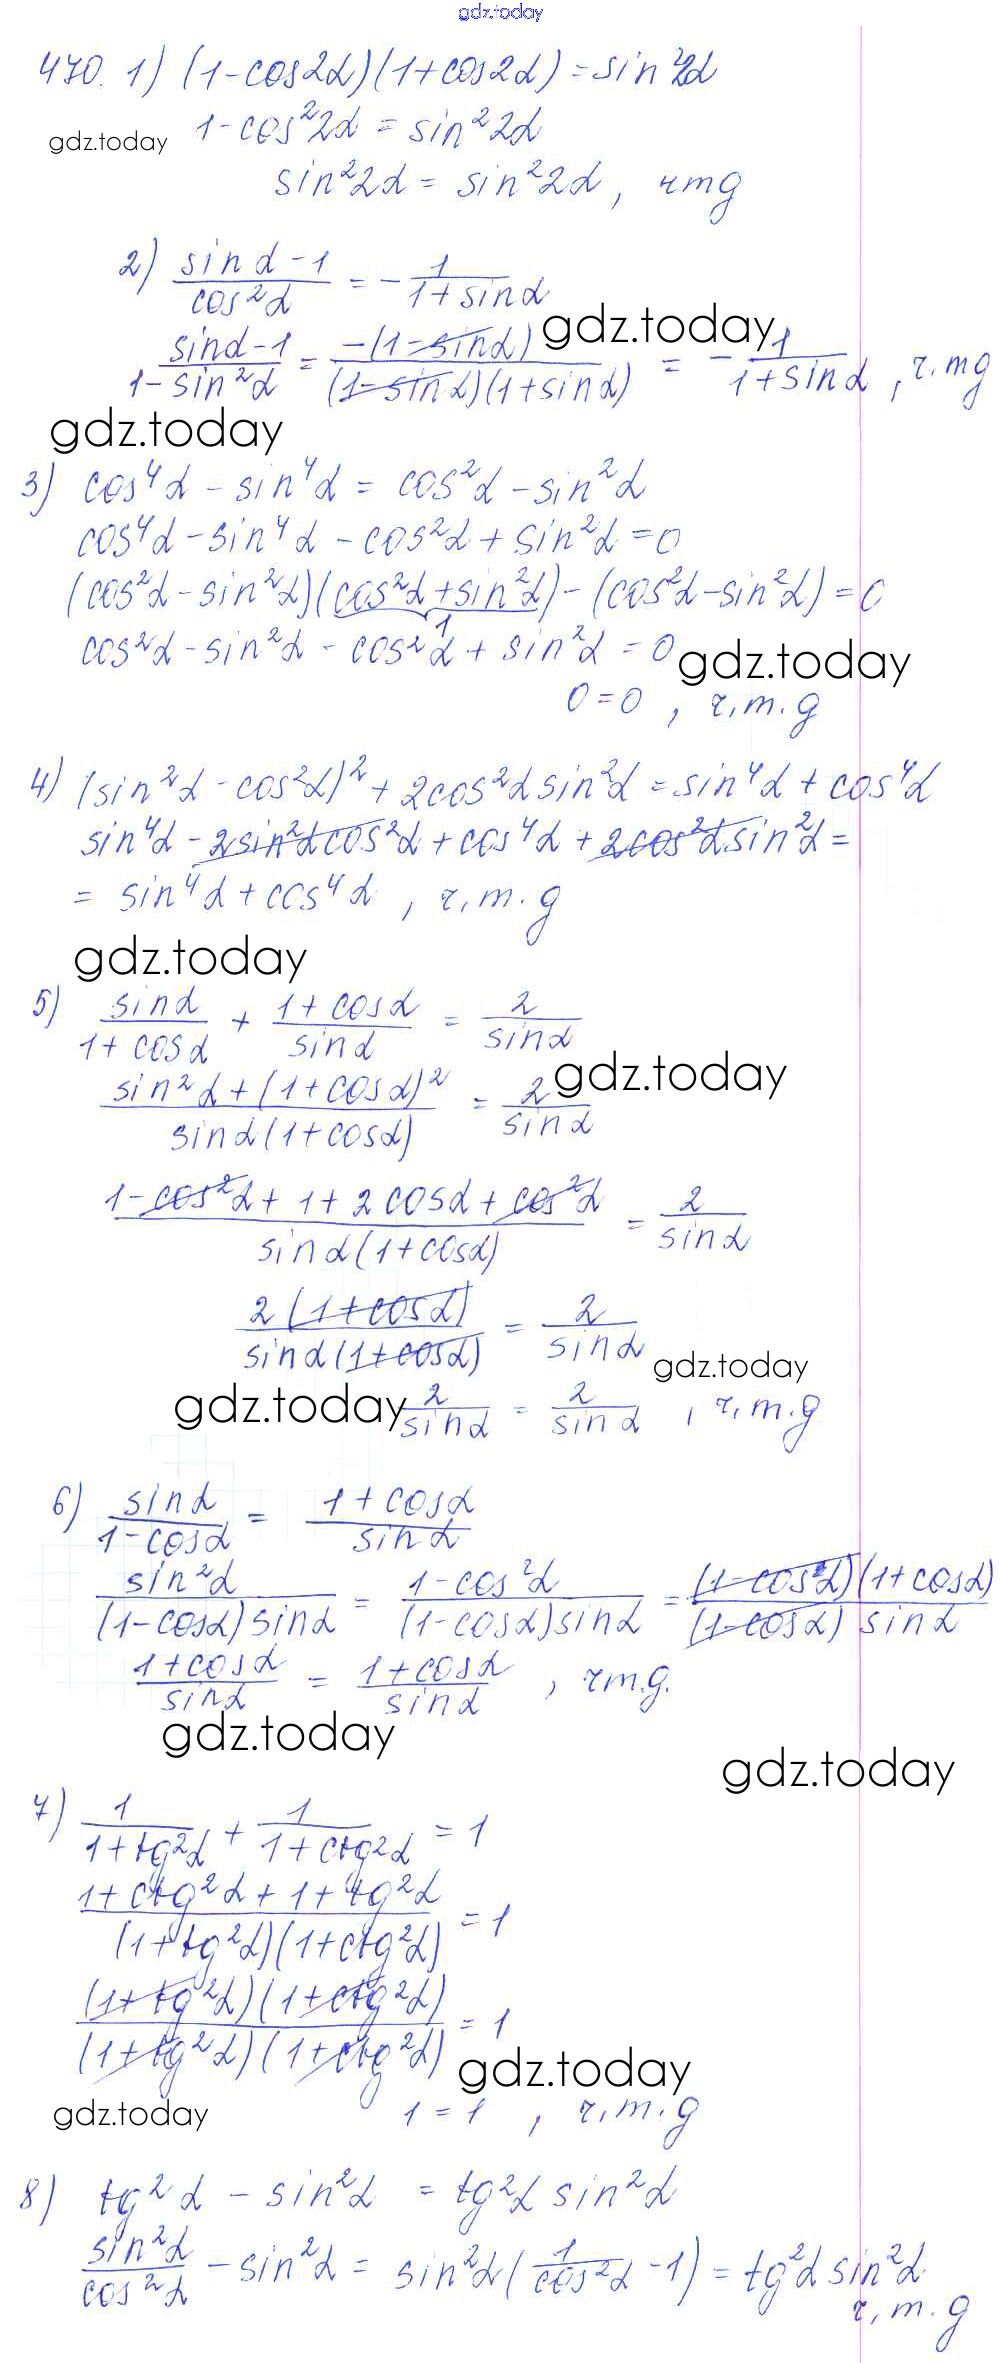 gdz.today
470. 1) (1-cos2α)(1+cos2α)=sin²2α
gdz.today 1-cos²2α = sin²2α
sin²2α = sin²2α, чтд
2) (sinα-1)/(cos²α) = -1/(1+sinα)
gdz.today
(sinα-1)/(1-sin²α) = (-(1-sinα))/((1-sinα)(1+sinα)) = -1/(1+sinα), ч.тд
gdz.today
3) cos⁴α - sin⁴α = cos²α - sin²α
cos⁴α - sin⁴α - cos²α + sin²α = 0
(cos²α - sin²α)(cos²α + sin²α) - (cos²α - sin²α) = 0
1
cos²α - sin²α - cos²α + sin²α = 0 gdz.today
0=0, ч.т.д
4) (sin²α - cos²α)² + 2cos²α sin²α = sin⁴α + cos⁴α
sin⁴α - 2sin²α cos²α + cos⁴α + 2cos²α sin²α =
= sin⁴α + cos⁴α, ч.т.д
gdz.today
5) sinα/(1+cosα) + (1+cosα)/sinα = 2/sinα
gdz.today
(sin²α + (1+cosα)²)/(sinα(1+cosα)) = 2/sinα
(1-cos²α + 1 + 2cosα + cos²α)/(sinα(1+cosα)) = 2/sinα
(2(1+cosα))/(sinα(1+cosα)) = 2/sinα gdz.today
gdz.today 2/sinα = 2/sinα, ч.т.д
6) sinα/(1-cosα) = (1+cosα)/sinα
sin²α/((1-cosα)sinα) = (1-cos²α)/((1-cosα)sinα) = ((1-cos²α)(1+cosα))/((1-cosα)sinα)
(1+cosα)/sinα = (1+cosα)/sinα, чт.д.
gdz.today
gdz.today
7) 1/(1+tg²α) + 1/(1+ctg²α) = 1
(1+ctg²α + 1+tg²α)/((1+tg²α)(1+ctg²α)) = 1
((1+tg²α)(1+ctg²α))/((1+tg²α)(1+ctg²α)) = 1
gdz.today
gdz.today 1=1, ч.т.д
8) tg²α - sin²α = tg²α sin²α
sin²α/cos²α - sin²α = sin²α(1/cos²α - 1) = tg²α sin²α
ч.т.д